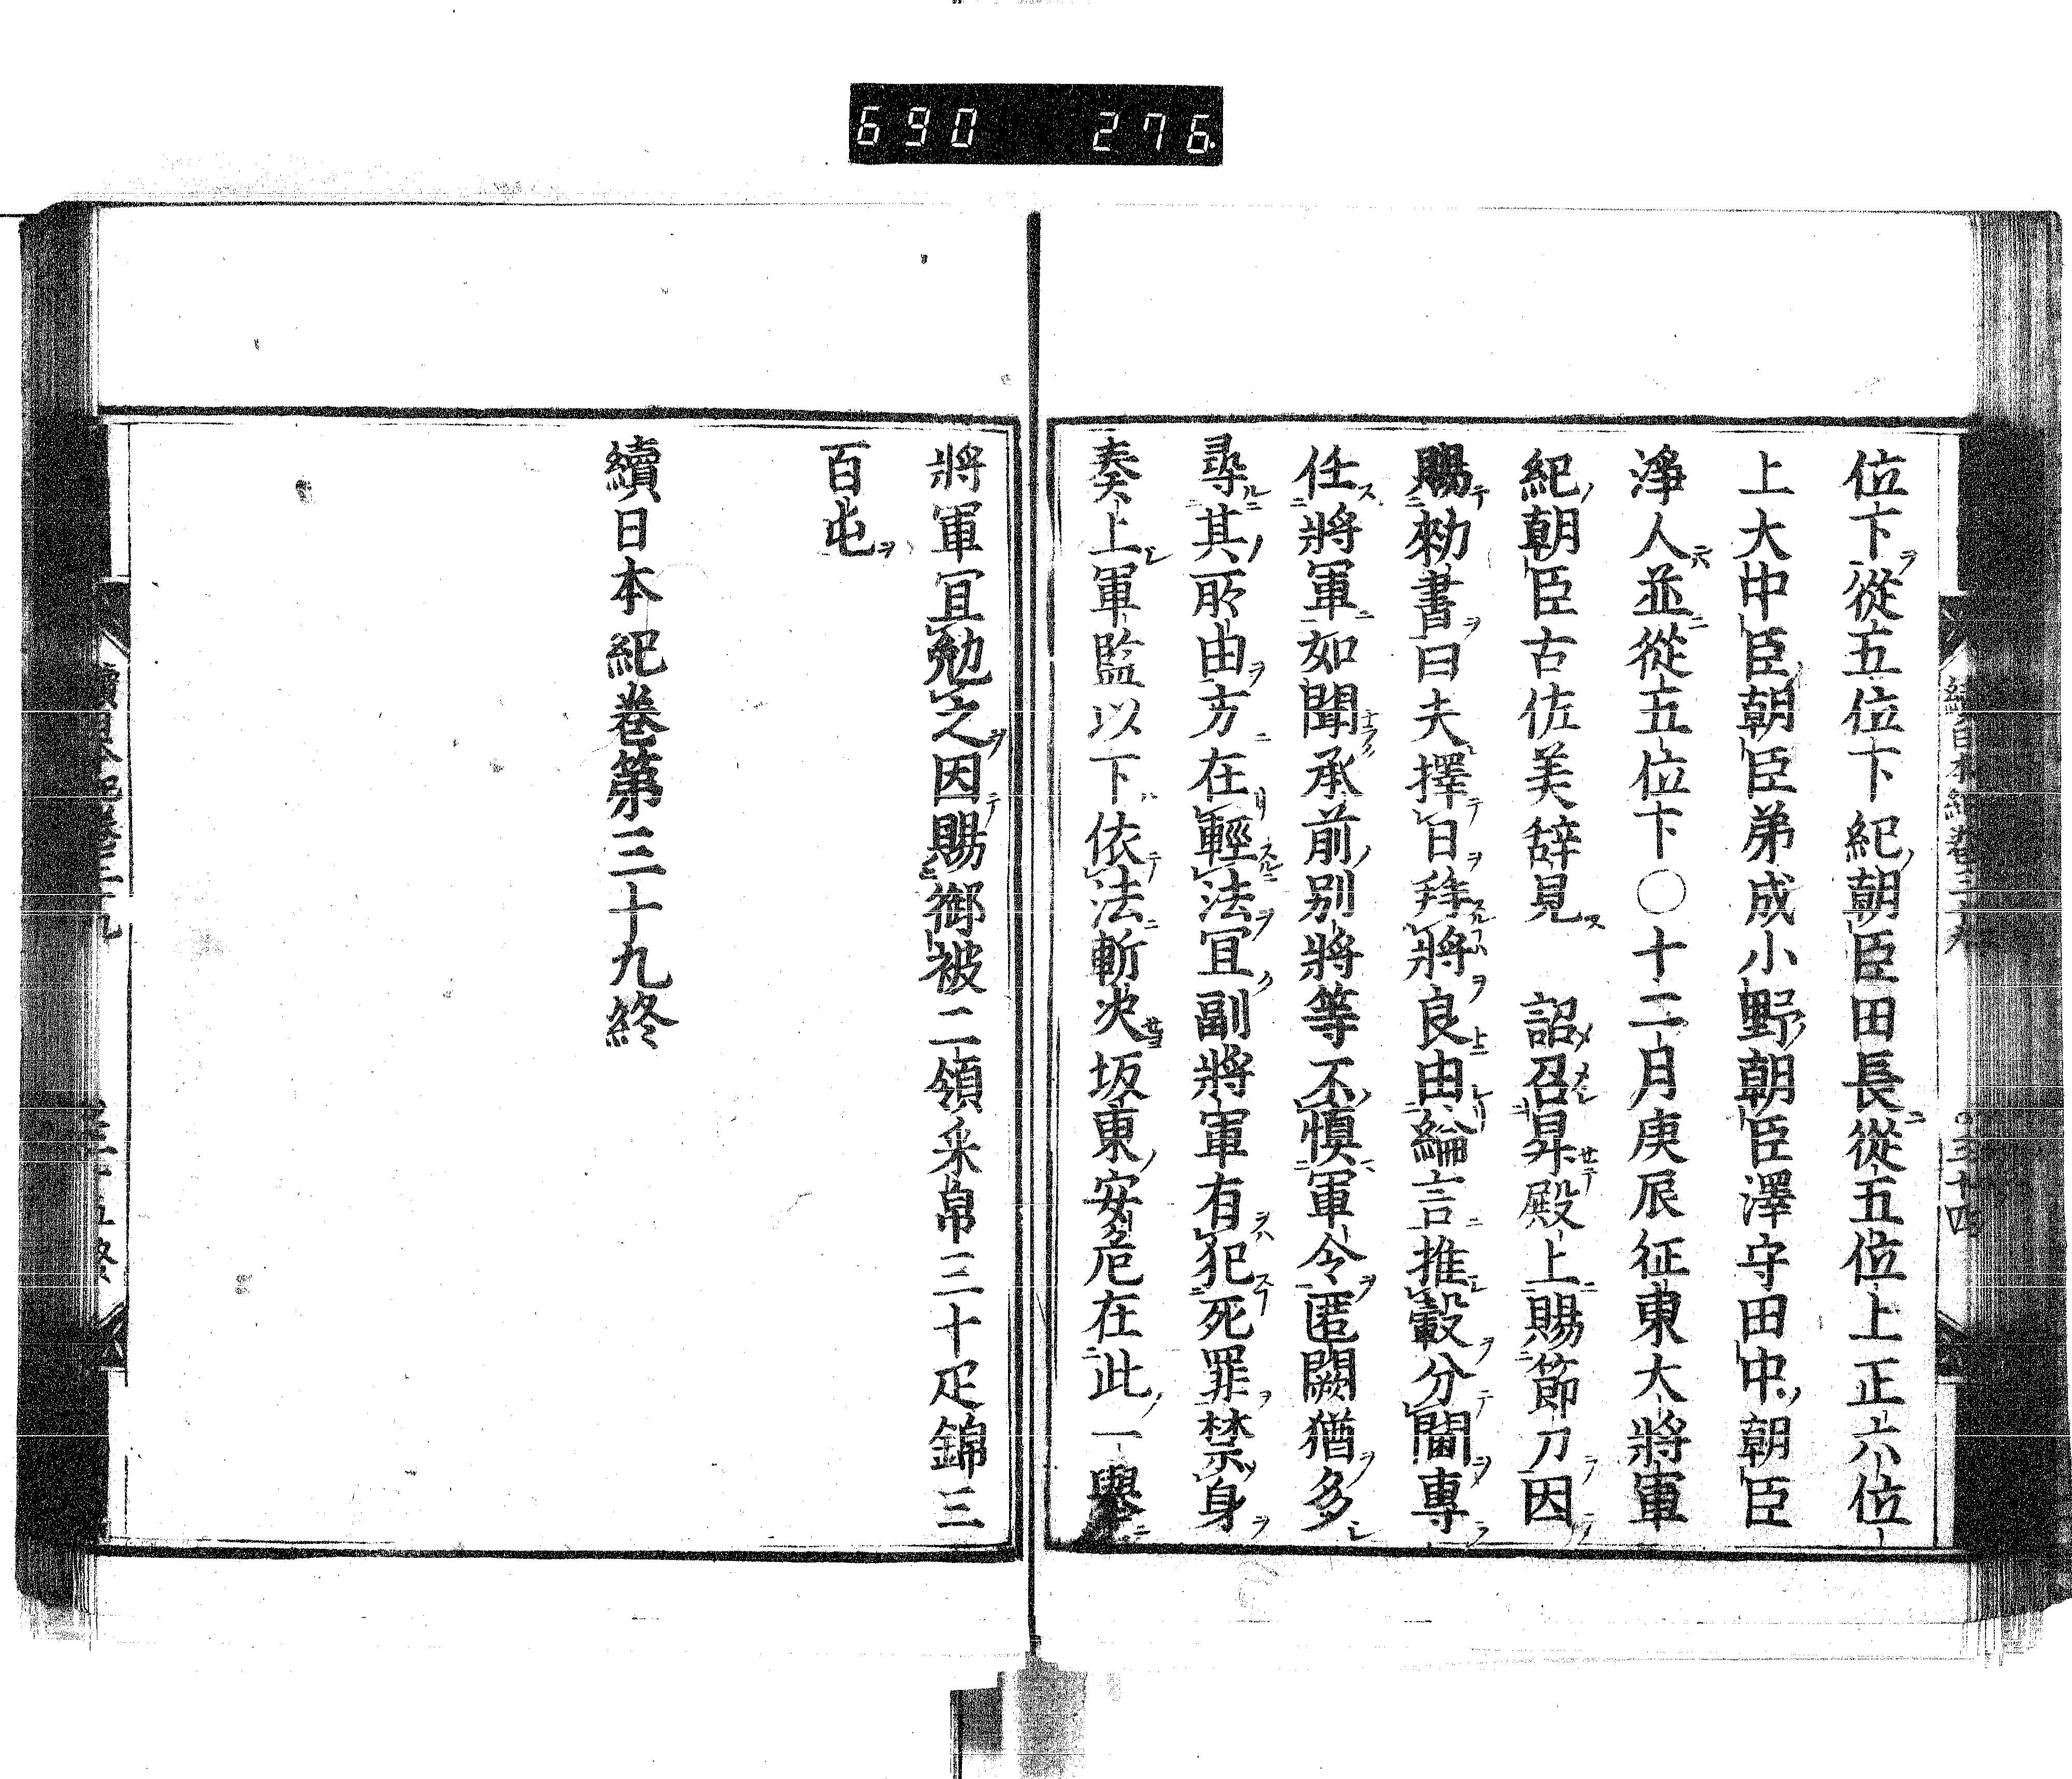 690 276
位下從五位下紀朝臣田長從五位上正六位
上大中臣朝臣弟成小野朝臣澤守田中朝臣
淨人並從五位下○十二月庚辰征東大將軍
紀朝臣古佐美辞見 詔召昇殿上賜節刀因
賜勑書曰夫擇日拜將良由綸言推轂分閫專
任將軍如聞承前別將等不愼軍令匿闕猶多
尋其所由方在輕法宜副將軍有犯死罪禁身
奏上軍監以下依法斬决坂東安危在此一擧
將軍宜勉之因賜御被二領采帛三十疋錦三
百屯
續日本紀卷第三十九終